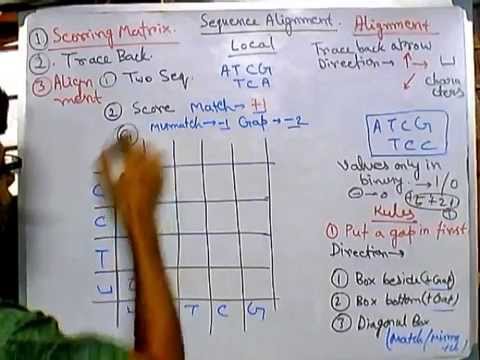 ① Scoring Matrix.
②. Trace Back.
③ Alignment
Sequence Alignment.
Local
① Two Seq.
ATCG
TCA
② Score Match→ +1
Mismatch→ -1 Gap→ -2
③
C
C
T
⊔ 0
⊔ T C G
Alignment
Trace back arrow
Direction→ ↑→ ⊔
↙ characters
ATCG
TCC
Values only in
binary. → 1/0
⊖→0
Rules
① Put a gap in first
Direction→
① Box beside (+Gap)
② Box bottom (+Gap)
③ Diagonal Box